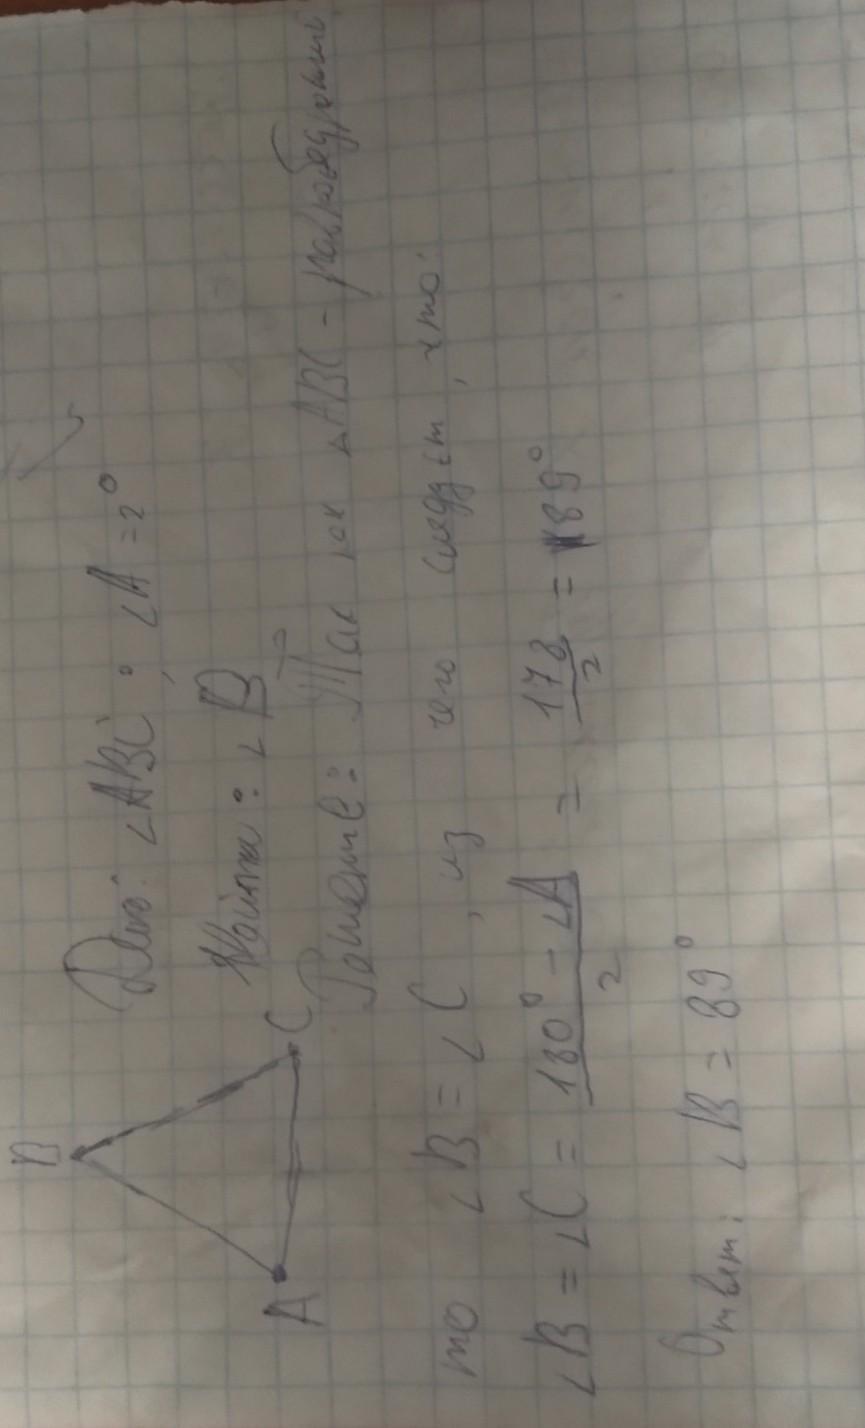 B
A
C
Дано: ∠ABC; ∠A=2°
Найти: ∠B
Решение: Так как △ABC - равнобедренный,
то ∠B = ∠C, из чего следует, что:
∠B = ∠C = (180° - ∠A)/2 = 178/2 = 89°
Ответ: ∠B = 89°